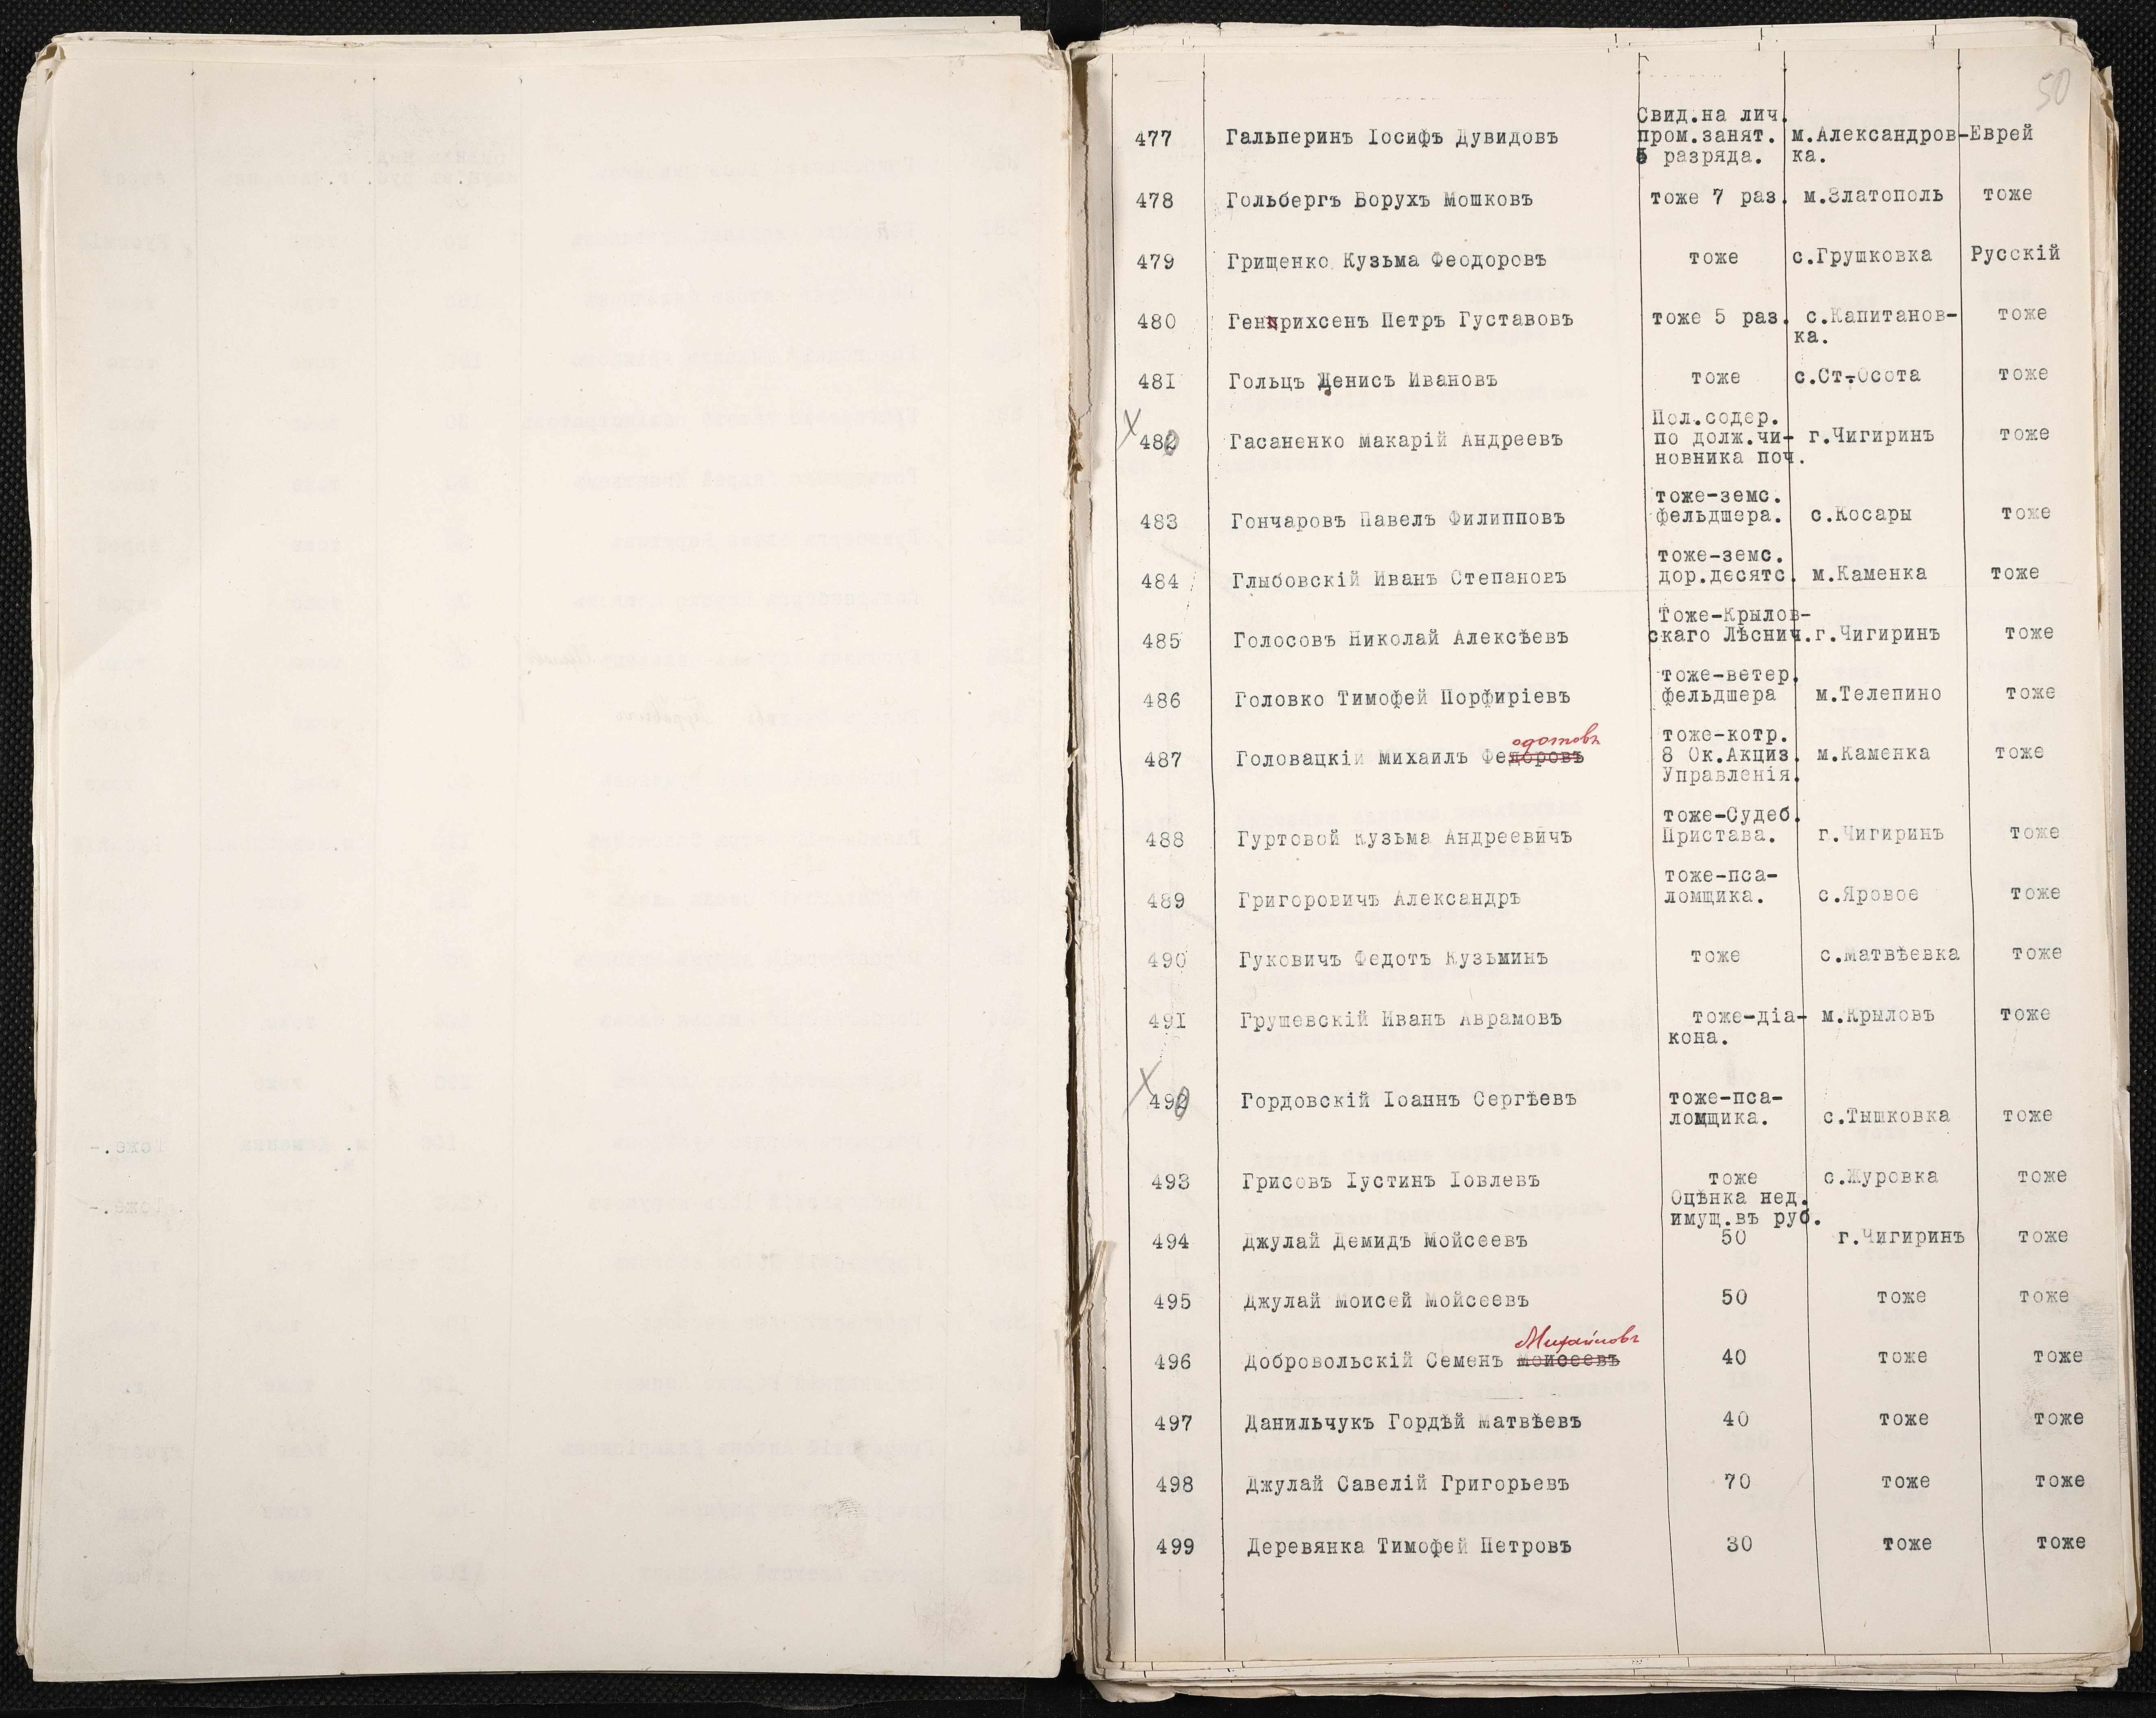 50
477 Гальперинъ Іосифъ Дувидовъ Свид.на лич. пром.занят. 5 разряда. м.Александров-ка. Еврей
478 Гольбергъ Борухъ Мошковъ тоже 7 раз. м.Златополь тоже
479 Грищенко Кузьма Феодоровъ тоже с.Грушковка Русскій
480 Генрихсенъ Петръ Густавовъ тоже 5 раз. с.Капитанов-ка. тоже
481 Гольцъ Денисъ Ивановъ тоже с.Ст-Осота тоже
482 Гасаненко Макарій Андреевъ Пол.содер. по долж.чи-новника поч. г.Чигиринъ тоже
483 Гончаровъ Павелъ Филипповъ тоже-земс. фельдшера. с.Косары тоже
484 Глыбовскій Иванъ Степановъ тоже-земс. дор.десятс. м.Каменка тоже
485 Голосовъ Николай Алексѣевъ Тоже-Крылов-скаго Лѣснич. г.Чигиринъ тоже
486 Головко Тимофей Порфиріевъ тоже-ветер. фельдшера м.Телепино тоже
одотовъ
487 Головацкій Михаилъ Федоровъ тоже-котр. 8 Ок.Акциз. Управленія. м.Каменка тоже
488 Гуртовой Кузьма Андреевичъ тоже-Судеб. Пристава. г.Чигиринъ тоже
489 Григоровичъ Александръ тоже-пса-ломщика. с.Яровое тоже
490 Гуковичъ Федотъ Кузьминъ тоже с.Матвѣевка тоже
491 Грушевскій Иванъ Аврамовъ тоже-діа-кона. м.Крыловъ тоже
492 Гордовскій Іоаннъ Сергѣевъ тоже-пса-ломщика. с.Тышковка тоже
493 Грисовъ Іустинъ Іовлевъ тоже с.Журовка тоже
Оцѣнка нед. имущ.въ руб.
494 Джулай Демидъ Мойсеевъ 50 г.Чигиринъ тоже
495 Джулай Моисей Мойсеевъ 50 тоже тоже
Михайловъ
496 Добровольскій Семенъ Моисеевъ 40 тоже тоже
497 Данильчукъ Гордѣй Матвѣевъ 40 тоже тоже
498 Джулай Савелій Григорьевъ 70 тоже тоже
499 Деревянка Тимофей Петровъ 30 тоже тоже